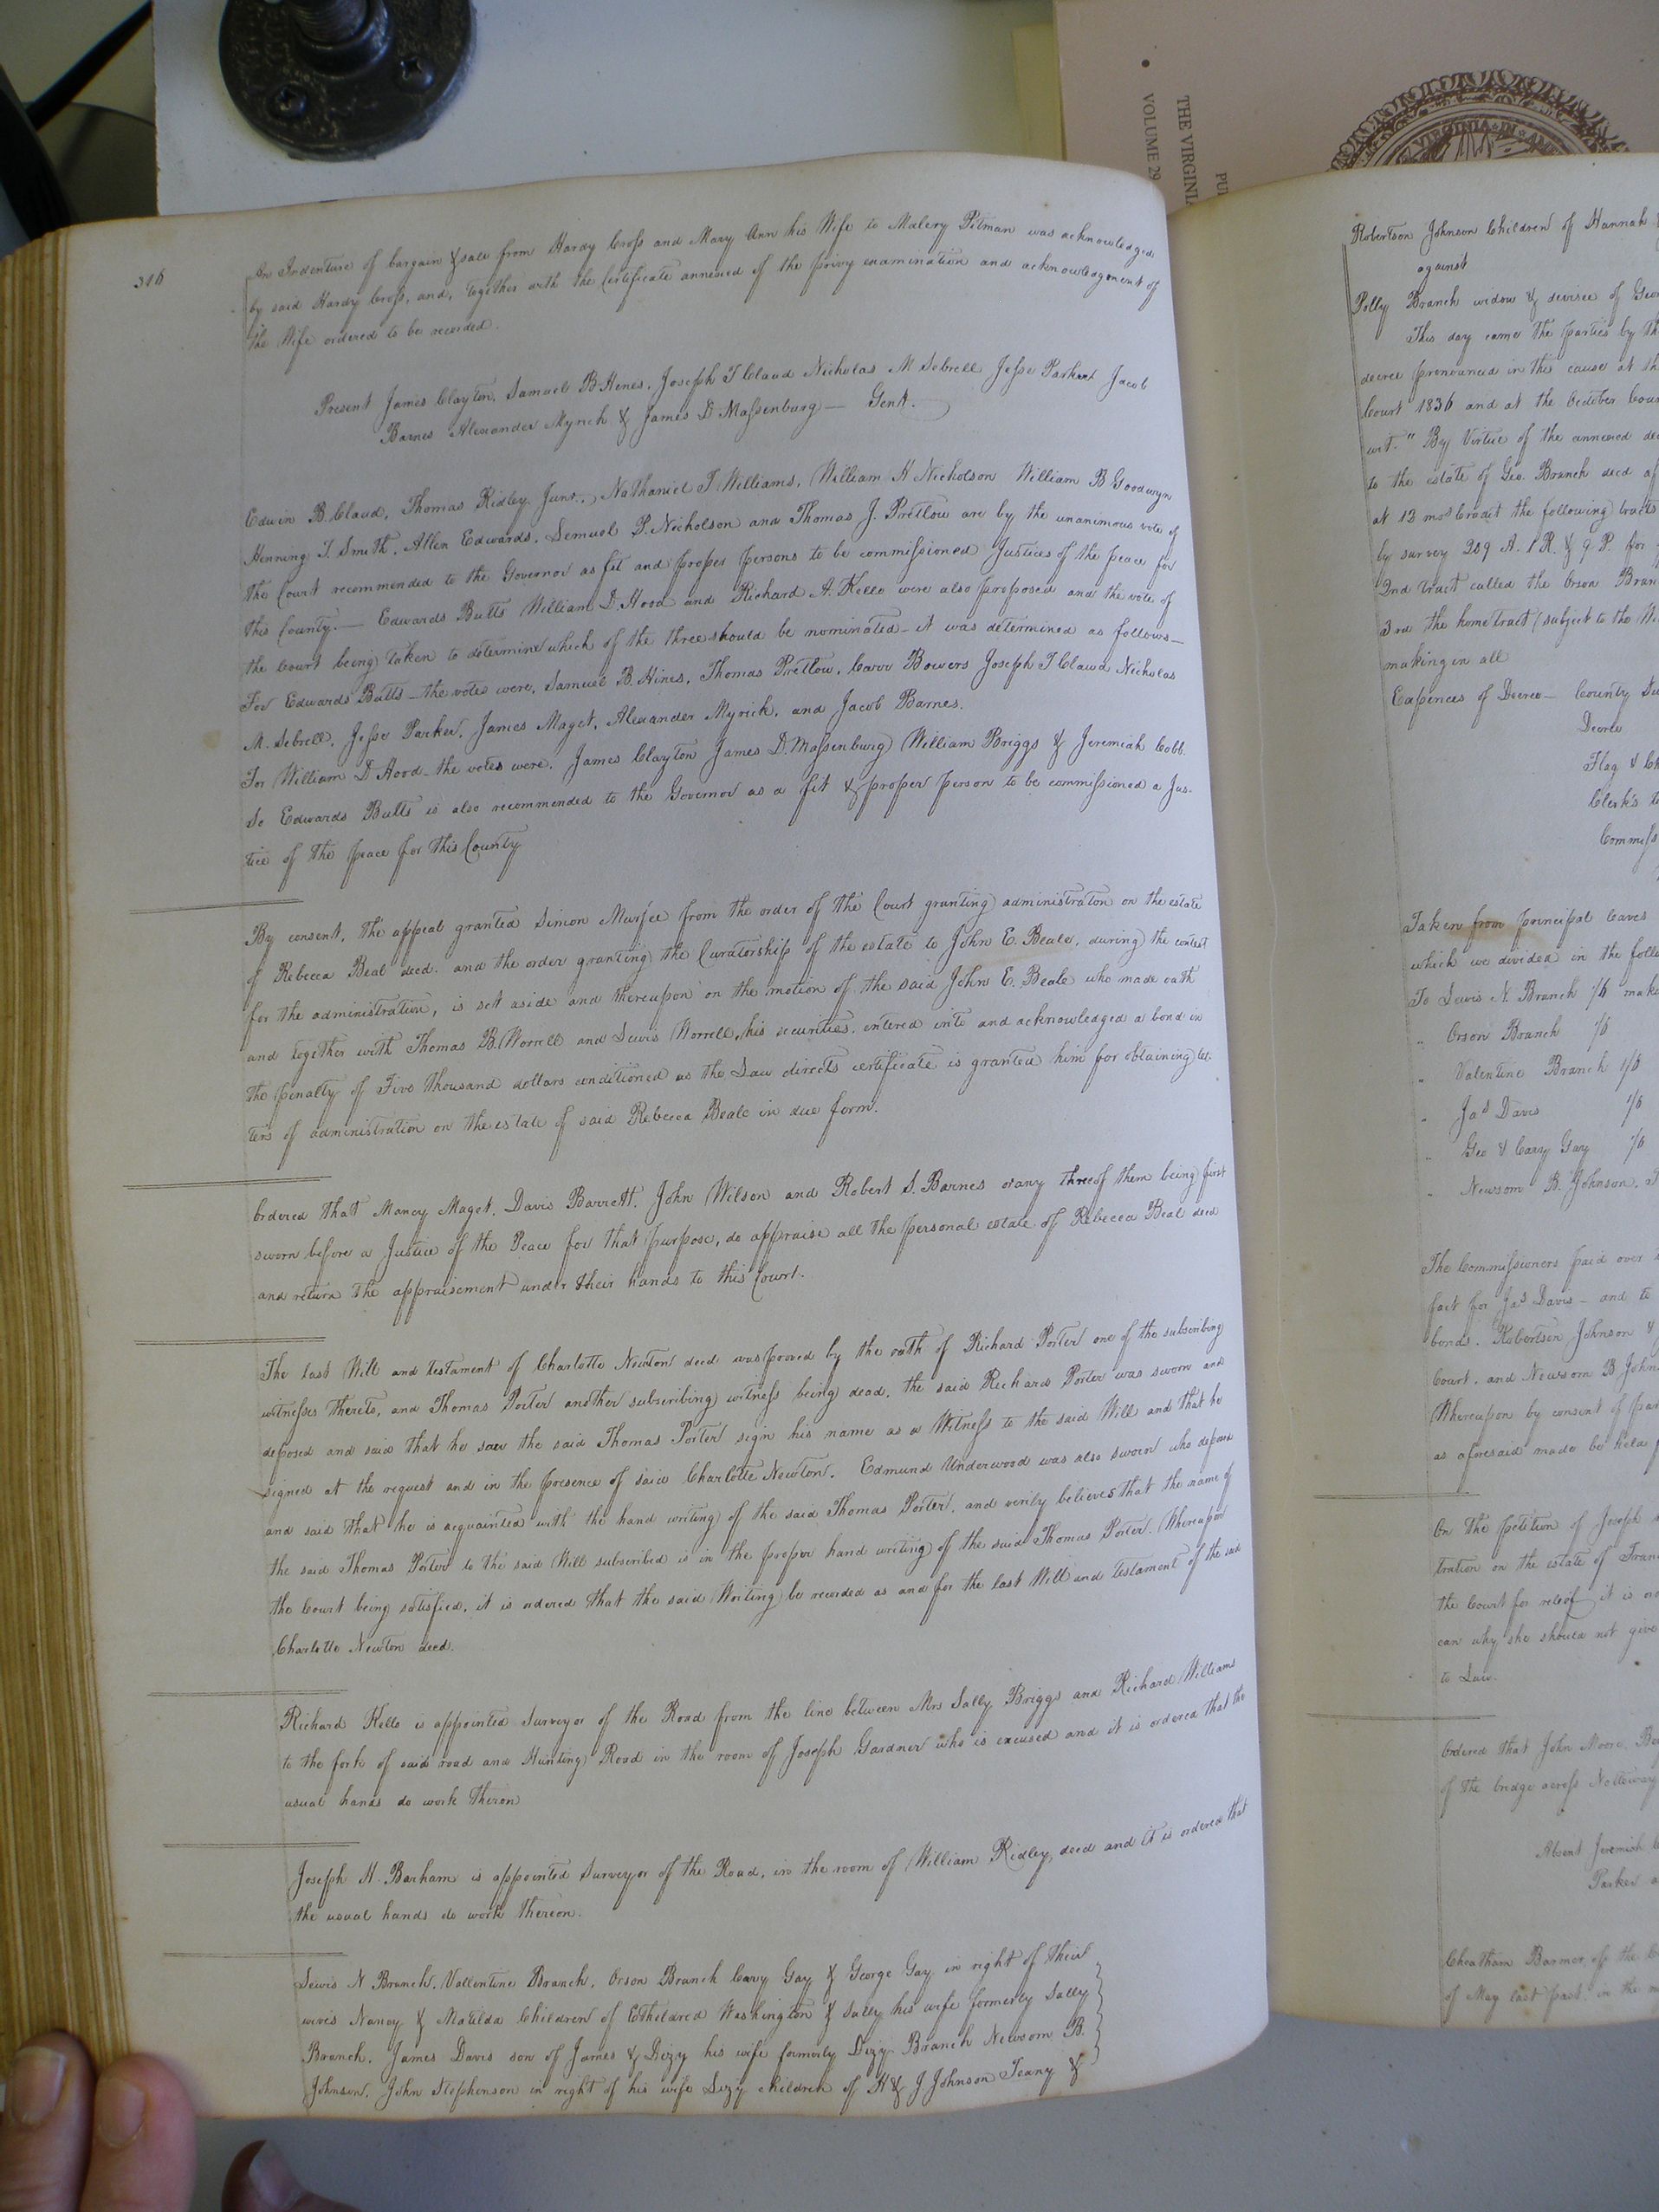 316
An Indenture of bargain & sale from Hardy Cross and Mary Ann his Wife to Malery Pitman was acknowledged
by said Hardy Cross, and, together with the Certificate annexed of the privy examination and acknowledgment of
the Wife ordered to be recorded.
Present James Clayton, Samuel B. Hines, Joseph T Claud Nicholas M Sebrell Jesse Parker Jacob
Barnes Alexander Myrick & James D Massenburg — Gent.
Edwin B. Claud, Thomas Ridley Junr., Nathaniel T Williams, William H Nicholson William B Goodwyn
Henning T. Smith, Allen Edwards, Lemuel P. Nicholson and Thomas J. Pretlow are by the unanimous vote of
the Court recommended to the Governor as fit and proper persons to be commissioned Justices of the peace for
this County. — Edwards Butts William D. Hood and Richard A. Kello were also proposed and the vote of
the Court being taken to determine which of the three should be nominated - it was determined as follows —
For Edwards Butts - the votes were, Samuel B. Hines, Thomas Pretlow, Carr Bowers Joseph T Claud Nicholas
M. Sebrell, Jesse Parker, James Maget, Alexander Myrick, and Jacob Barnes.
For William D Hood - the votes were, James Clayton James D. Massenburg William Briggs & Jeremiah Cobb.
So Edwards Butts is also recommended to the Governor as a fit & proper person to be commissioned a Jus-
tice of the peace for this County
By consent, the appeal granted Simon Murfee from the order of the Court granting administration on the estate
of Rebecca Beal decd. and the order granting the Curatorship of the estate to John E. Beale, during the contest
for the administration, is set aside and thereupon on the motion of the said John E. Beale who made oath
and together with Thomas B. Worrell and Lewis Worrell, his securities, entered into and acknowledged a bond in
the penalty of Five thousand dollars conditioned as the Law directs certificate is granted him for obtaining let-
ters of administration on the estate of said Rebecca Beale in due form.
Ordered that Mancy Maget, Davis Barrett, John Wilson and Robert S. Barnes or any three of them being first
sworn before a Justice of the Peace for that purpose, do appraise all the personal estate of Rebecca Beal decd
and return the appraisement under their hands to this Court.
The last Will and testament of Charlotte Newton decd was proved by the oath of Richard Porter one of the subscribing
witnesses thereto, and Thomas Porter another subscribing witness being dead, the said Richard Porter was sworn and
deposed and said that he saw the said Thomas Porter sign his name as a Witness to the said Will and that he
signed at the request and in the presence of said Charlotte Newton. Edmund Underwood was also sworn who deposed
and said that he is acquainted with the hand writing of the said Thomas Porter, and verily believes that the name of
the said Thomas Porter to the said Will subscribed is in the proper hand writing of the said Thomas Porter. Whereupon
the Court being satisfied, it is ordered that the said Writing be recorded as and for the last Will and testament of the said
Charlotte Newton decd.
Richard Kello is appointed Surveyor of the Road from the line between Mrs Sally Briggs and Richard Williams
to the fork of said road and Hunting Road in the room of Joseph Gardner who is excused and it is ordered that the
usual hands do work theron
Joseph H. Barham is appointed Surveyor of the Road, in the room of William Ridley, decd and it is ordered that
the usual hands do work thereon.
Lewis N Branch, Vallentine Branch, Orson Branch Cary Gay & George Gay in right of their
wives Nancy & Matilda Children of Etheldred Washington & Sally his wife formerly Sally
Branch, James Davis son of James & Dizy his wife formerly Dizy Branch Newsom B.
Johnson, John Stephenson in right of his wife Lizy children of H & J Johnson Teany &
Robertson Johnson Children of Hannah
against
Polly Branch widow & devisee of
This day came the parties by
decree pronounced in this cause at
Court 1836 and at the October
wit. " By Virtue of the annexed
to the estate of Geo. Branch decd
at 12 mos Credit the following tracts
by survey 209 A. 1 R. & 9 P. for
2nd tract called the Orson
3rd the home tract (subject to the
making in all
Expences of Decree — County
Decree
Flag &
Clerk's
Taken from principal leaves
which we divided in the
To Lewis N. Branch 1/6
" Orson Branch 1/6
" Valentine Branch 1/6
" Jas Davis 1/6
" Geo & Cary Gay 1/6
" Newsom B. Johnson,
The Commissioners paid over
fact for Jas Davis — and to
bonds. Robertson Johnson &
Court, and Newsom B
Whereupon by consent of
as aforesaid made be held
On the petition of Joseph
tration on the estate of
the Court for releof it is
can why she should not give
to Law.
Ordered that John Moore,
of the bridge across Nottoway
Absent Jeremiah
Parker
Cheatham Barmer,
of May last past, in the
THE VIRGINIA
VOLUME 29
VIRGINIA